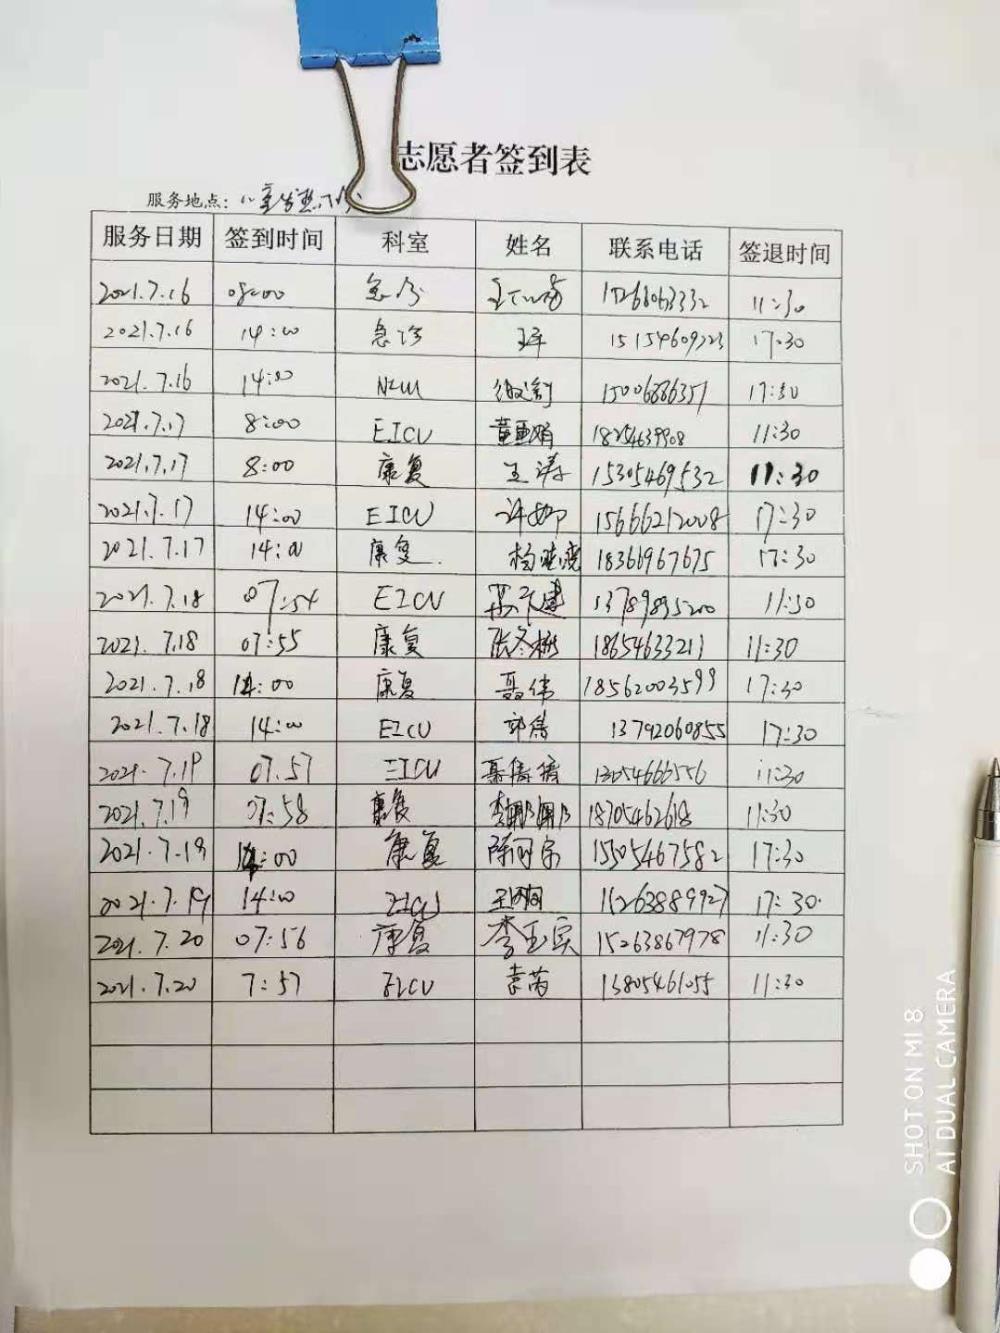 志愿者签到表
服务地点：儿童发热门诊
服务日期 签到时间 科室 姓名 联系电话 签退时间
2021.7.16 08:00 急诊 11:30
2021.7.16 14:00 急诊 15154609323 17:30
2021.7.16 14:00 NICU 15006886351 17:30
2021.7.17 8:00 EICU 董亚娟 18254639908 11:30
2021.7.17 8:00 康复 王涛 15305469532 11:30
2021.7.17 14:00 EICU 15666212008 17:30
2021.7.17 14:00 康复 杨晓晓 18366967675 17:30
2021.7.18 07:54 EICU 13789895200 11:30
2021.7.18 07:55 康复 张冬梅 18654633211 11:30
2021.7.18 14:00 康复 聂伟 18562003599 17:30
2021.7.18 14:00 EICU 郭倩 13792060855 17:30
2021.7.19 07:57 EICU 13054666556 11:30
2021.7.19 07:58 康复 李娜娜 18705462618 11:30
2021.7.19 14:00 康复 15505467582 17:30
2021.7.19 14:00 EICU 15263889927 17:30
2021.7.20 07:56 康复 李玉宾 15263867978 11:30
2021.7.20 7:57 EICU 袁芮 13805461055 11:30
SHOT ON MI 8
AI DUAL CAMERA